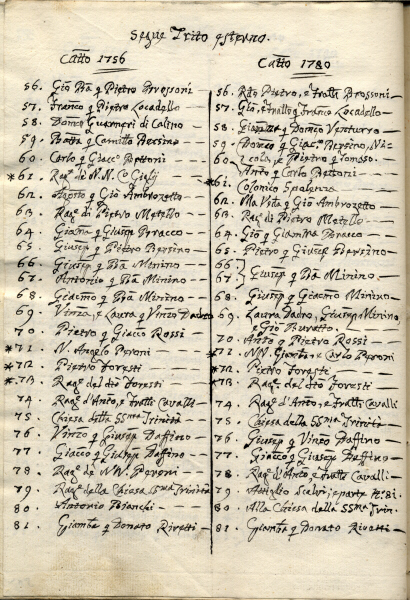 Segue Trito esterno.
Catto 1756
56. Gio Bta q Pietro Bressoni
57. Franco q Pietro Locadello
58. Domco Guarneri di Calino
59. Batta q Camillo Bersino
60. Carlo q Giacco Bettoni
*61. Ragi di N.N. Co
62. Agosto q Gio Ambrozetto
63. Ragi di Pietro Metello
64. Giamba q Giusep Bracco
65. Giusep q Pietro Bersino
66. Giusep q Bta Minino
67. Antonio q Bta Minino
68. Giacmo q Bta Minino
69. Vinzo, e Laura q Vinzo
70. Pietro q Giacco Rossi
*71. N. Angelo Peroni
*72. Pietro Foresti
*73. Ragi del dto Foresti
74. Ragi d'Anto, e Fratti Cavalli
75. Chiesa della SSma Trinità
76. Vinzo q Giusep Daffino
77. Giacco q Giusep Daffino
78. Ragi de NN. Peroni
79. Ragi della Chiesa SSma Trinità
80. Antonio Bianchi
81. Giamba q Donato Rivetti
Catto 1780
56. Ragi Pietro, e Fratti Bressoni
57. Gio, e Fratti q Franco Locadello
58. q Domco Venturra
59. Domco q Giac. Bersino, Ni-
60. cola, e Pietro q Tomaso.
Anto q Carlo Bettoni
*61. Colonico Spalenza
62. Ma Vita q Gio Ambrozetto
63. Ragi di Pietro Metello
64. Gio q Giamba Bracco
65. Pietro q Giusep Bersino
66.
67. Giusep q Bta Minino
68. Giusep q Giacmo Minino
69. Laura, Giusep Minino,
e Gio Buratto.
70. Anto q Pietro Rossi
*71. NN. Giamba, e Carlo Peroni
*72. Pietro Foresti
*73. Ragi del dto Foresti
74. Ragi d'Anto, e Fratti Cavalli
75. Chiesa della SSma Trinità
76. Giusep q Vinzo Daffino
77. Giacco q Giusep Daffino
78. Ragi d'Anto, e Fratti Cavalli
79. Attiglio Scalvi, e parte
80. Alla Chiesa della SSma Trin.
81. Giamba q Donato Rivetti